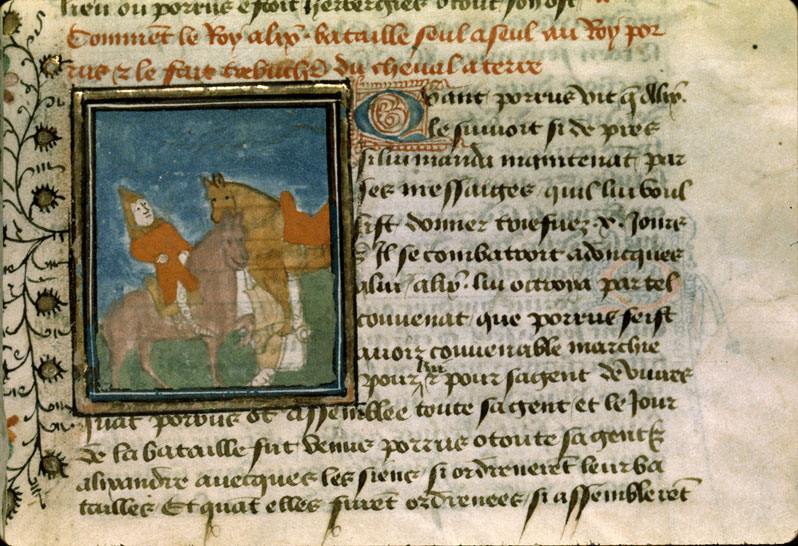 lieu ou porrus estoit herbergies o tout son ost
Comment le Roy alix̄. bataille seul a seul au Roy por
rus ⁊ le fait trebuchier du cheval a terre
Quant porrus vit q̄ Alix̄.
le suivoit si de pres
si lui manda maintenāt par
ses messaiges quil lui voul
sist donner triefuez .x. Jours
⁊ Il se combatroit adoncques
a lui alix̄. lui octroya par tel
convenāt que porrus feist
avoir convenable marchie
pour lui ⁊ pour sa gent de vivres
quāt porrus ot assemblee toute sa gent et le Jour
de la bataille fut venus porrus o toute sa gent ⁊
alixandre avecques les siens si ordrenerēt leur ba
tailles Et quāt elles furēt ordrenees si assemblerēt